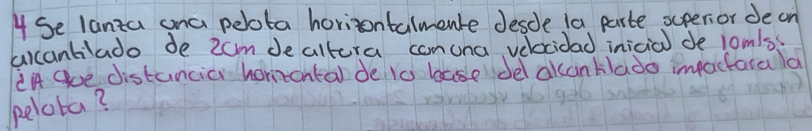 4 Se lanza una pelota horizontalmente desde la parte superior de un
alcantilado de 2cm de altura con una velocidad inicial de 10m/s.
¿A que distancia horizontal de la base del alcantilado impactara la
pelota?